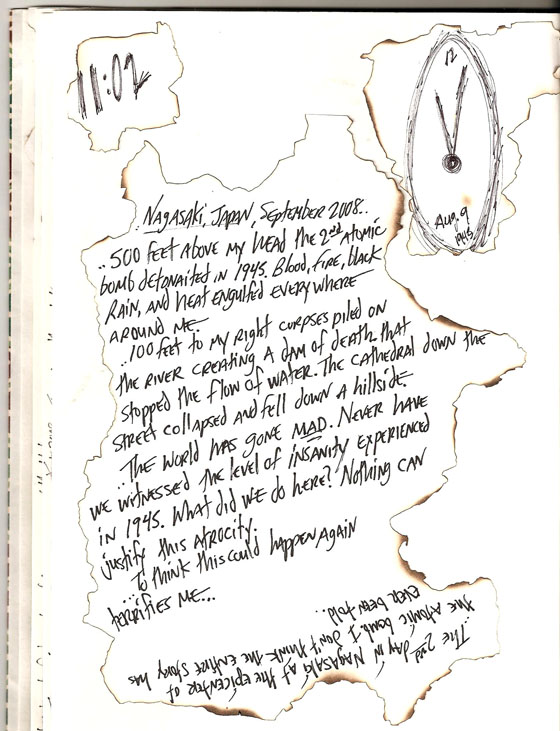 11:02
12
Aug. 9
1945
Nagasaki, Japan, September 2008..
..500 feet above my head the 2nd atomic
bomb detonaited in 1945. Blood, fire, black
rain, and heat engulfed everywhere
around me.
..100 feet to my right corpses piled on
the river creating a dam of death that
stopped the flow of water. The cathedral down the
street collapsed and fell down a hillside
..The world has gone MAD. Never have
we witnessed the level of insanity experienced
in 1945. What did we do here? Nothing can
justify this atrocity.
...To think this could happen again
terrifies me...
..The 2nd day in Nagasaki at the epicenter of
the atomic bomb. I don't think the entire story has
ever been told..